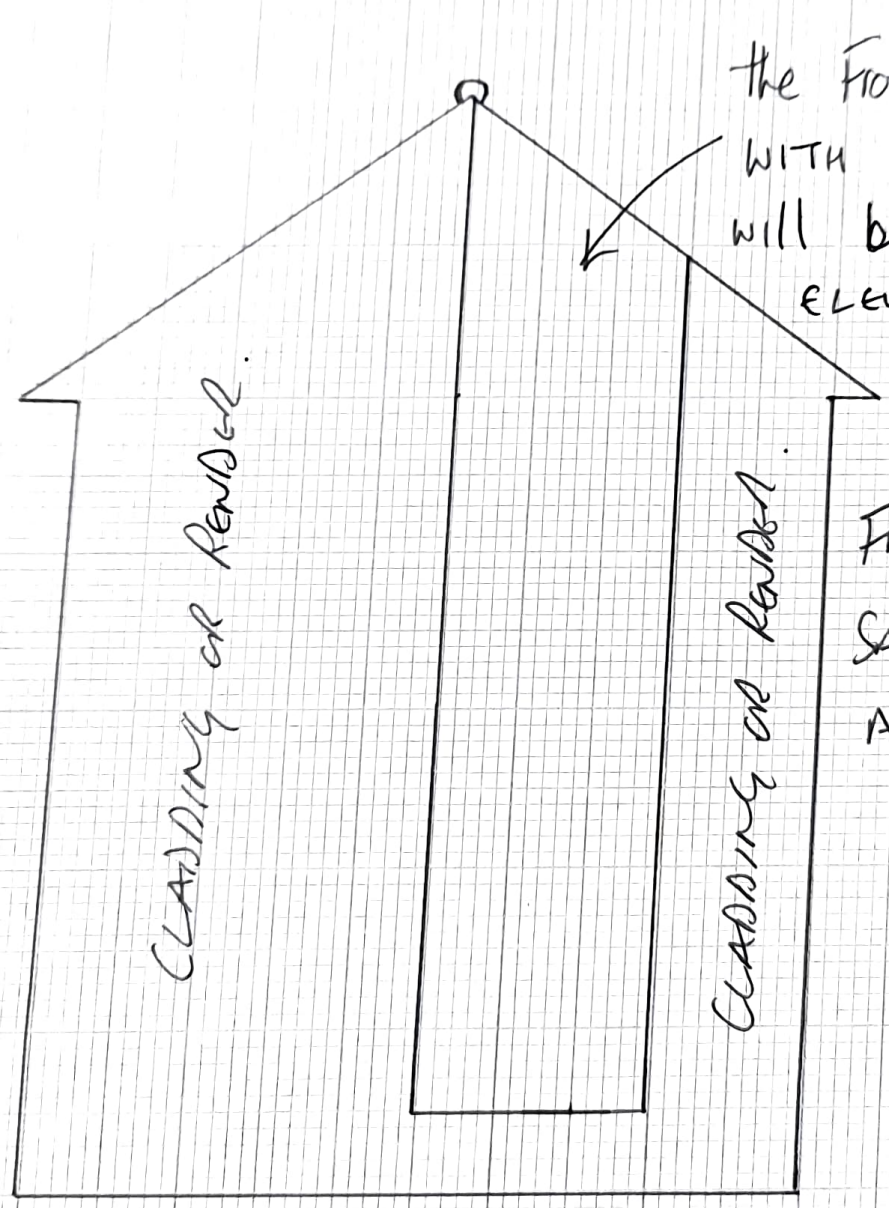 the
WITH
will b
CLADDING OR RENDER.
CLADDING OR RENDER.